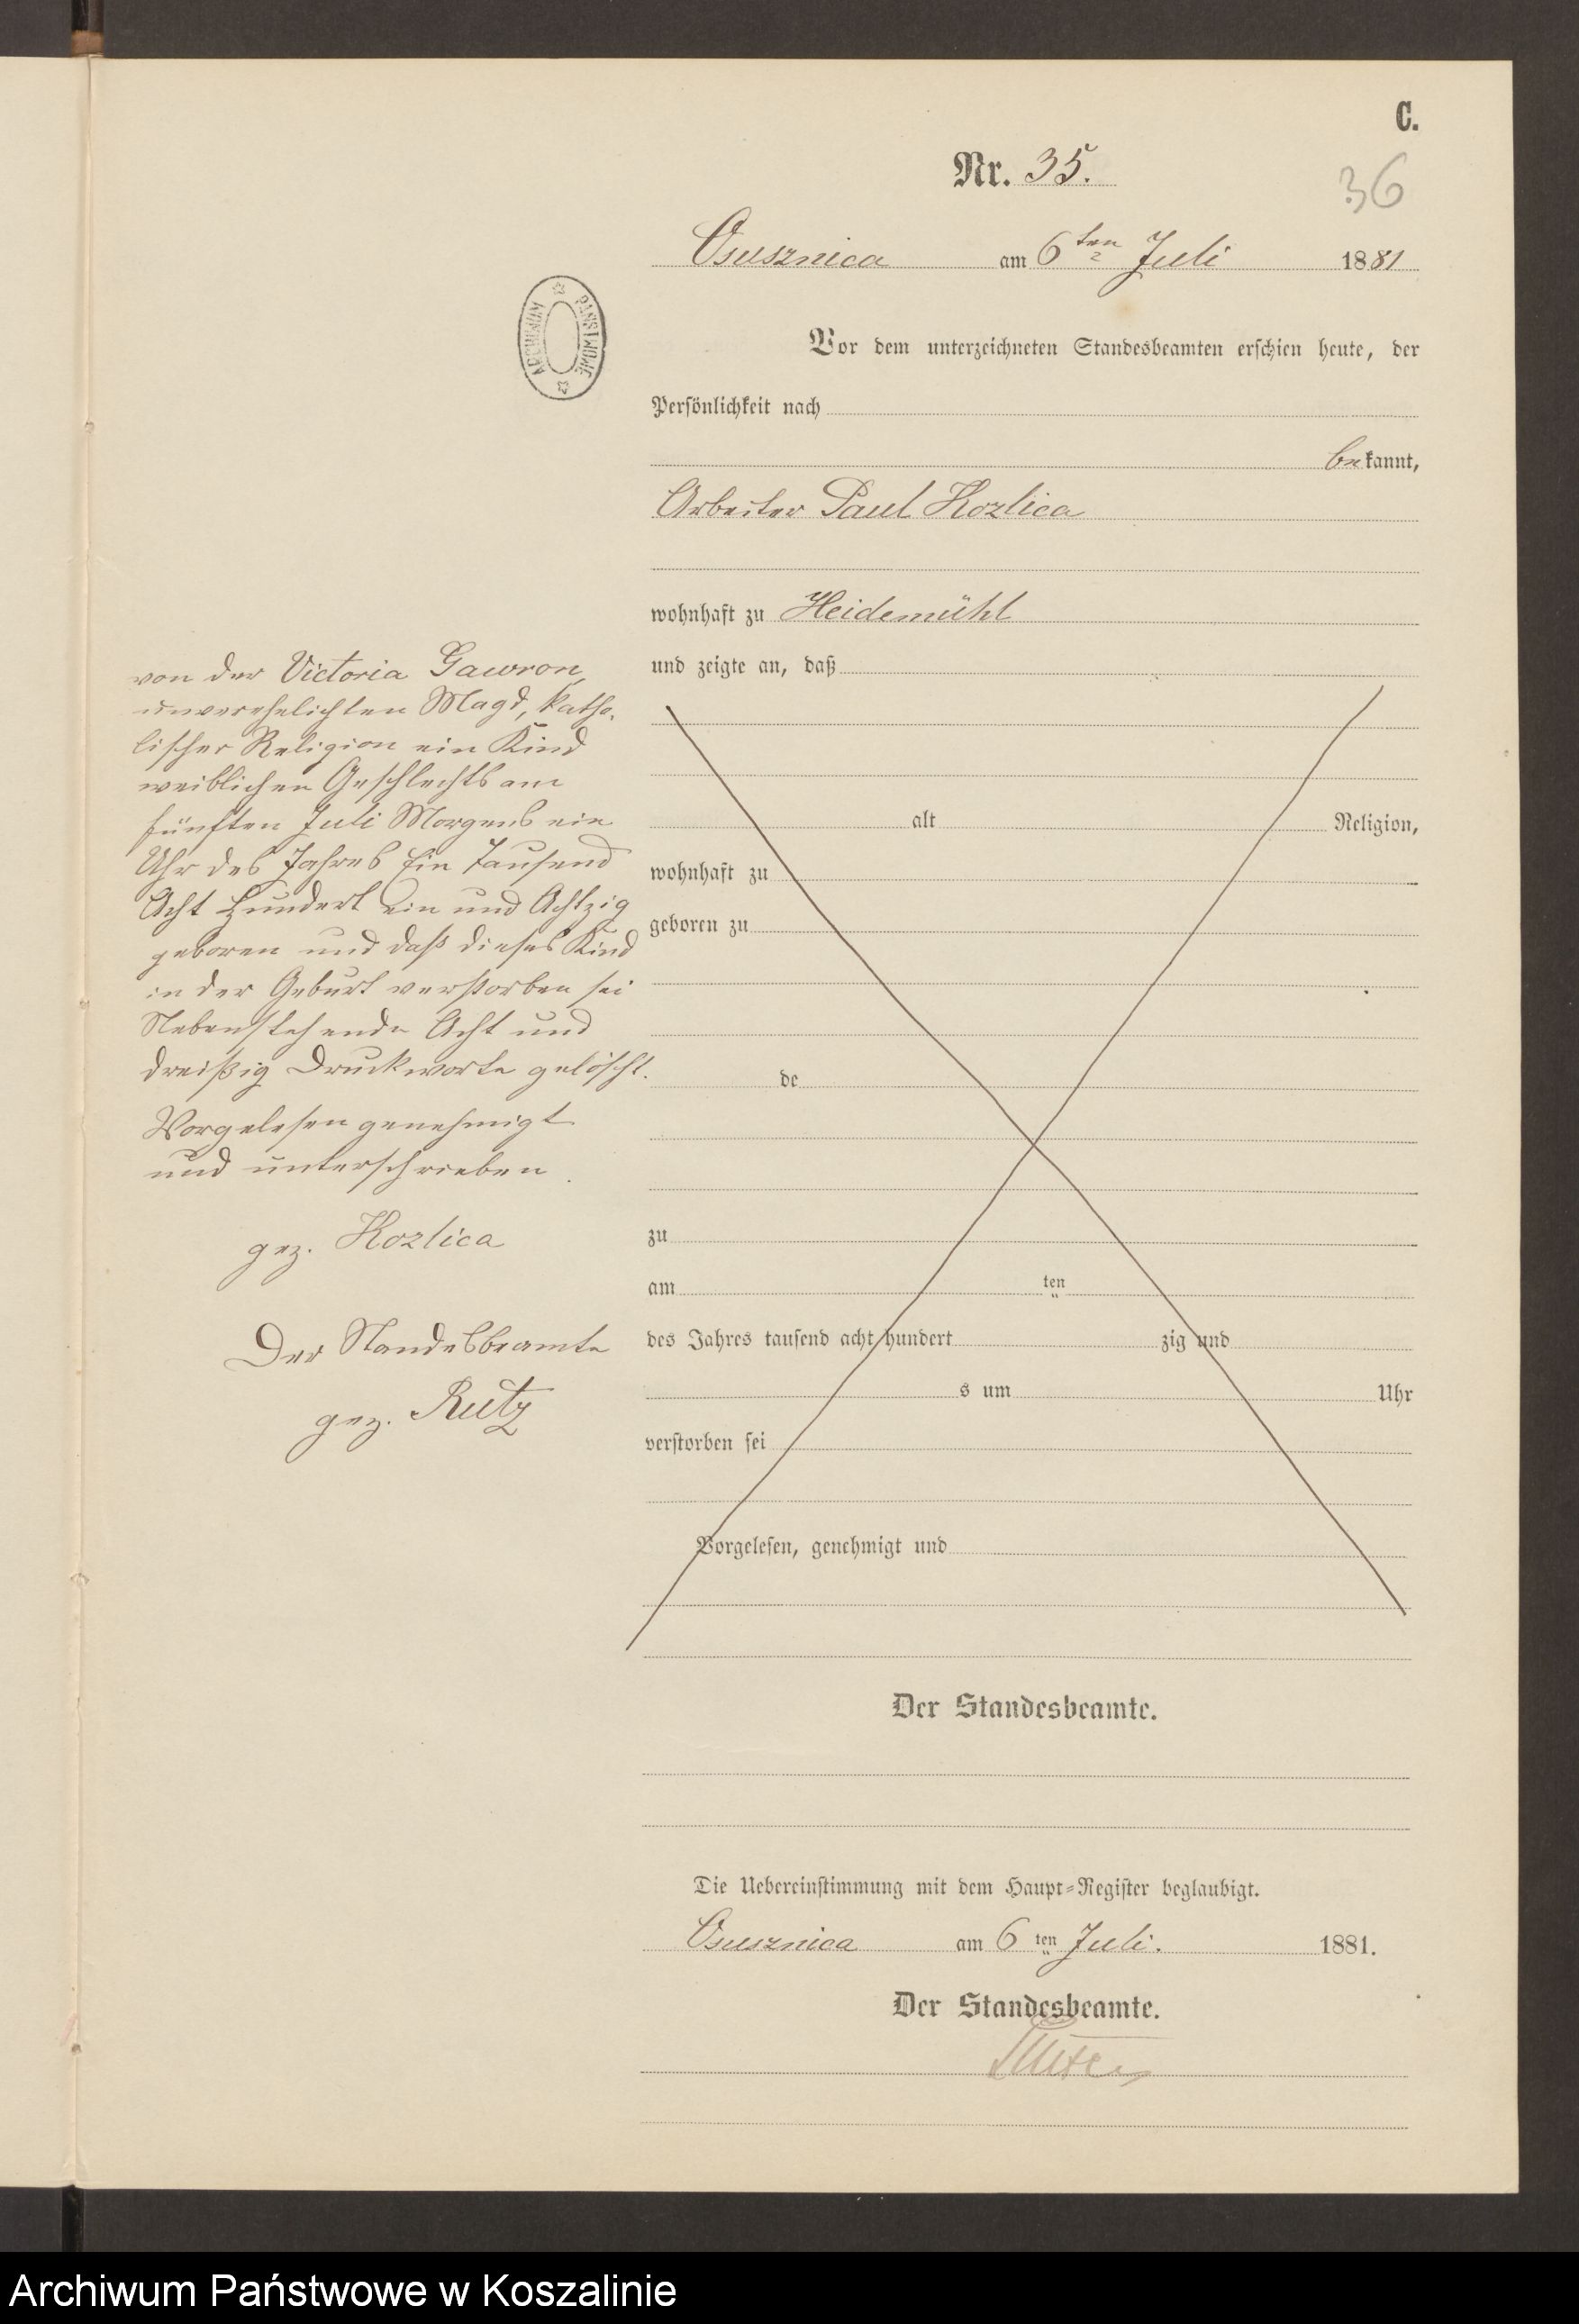 C.
Nr. 35.
36
Osusznica am 6ten Juli 1881
ARCHIWUM PAŃSTWOWE
Vor dem unterzeichneten Standesbeamten erschien heute, der
Persönlichkeit nach
bekannt,
Arbeiter Paul Kozlica
wohnhaft zu Heidemühl
und zeigte an, daß
von der Victoria Gawron,
unverehelichten Magd, katho-
lischer Religion ein Kind
weiblichen Geschlechts am
fünften Juli Morgens ein
Uhr des Jahres Ein Tausend
Acht Hundert ein und Achtzig
geboren und daß dieses Kind
in der Geburt verstorben sei
Nebenstehende Acht und
dreißig Druckworte gelöscht.
Vorgelesen genehmigt
und unterschrieben.
gez. Kozlica
Der Standesbeamte
gez. Rutz
alt Religion,
wohnhaft zu
geboren zu
de
zu
am ten
des Jahres tausend acht hundert zig und
s um Uhr
verstorben sei
Vorgelesen, genehmigt und
Der Standesbeamte.
Die Uebereinstimmung mit dem Haupt-Register beglaubigt.
Osusznica am 6ten Juli. 1881.
Der Standesbeamte.
Archiwum Państwowe w Koszalinie